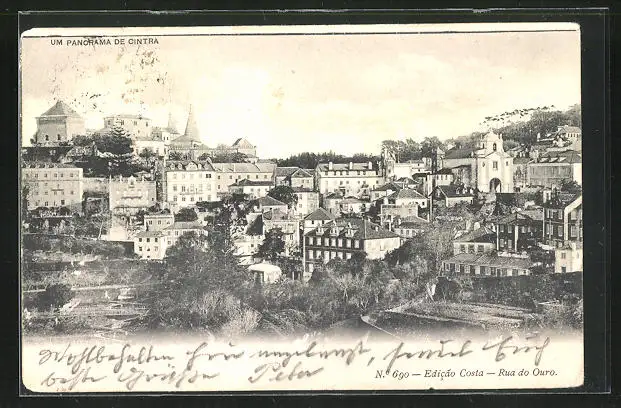 UM PANORAMA DE CINTRA
Wohlbehalten hier angelangt, sendet Euch
beste Grüsse Peter
N.º 690 — Edição Costa — Rua do Ouro.